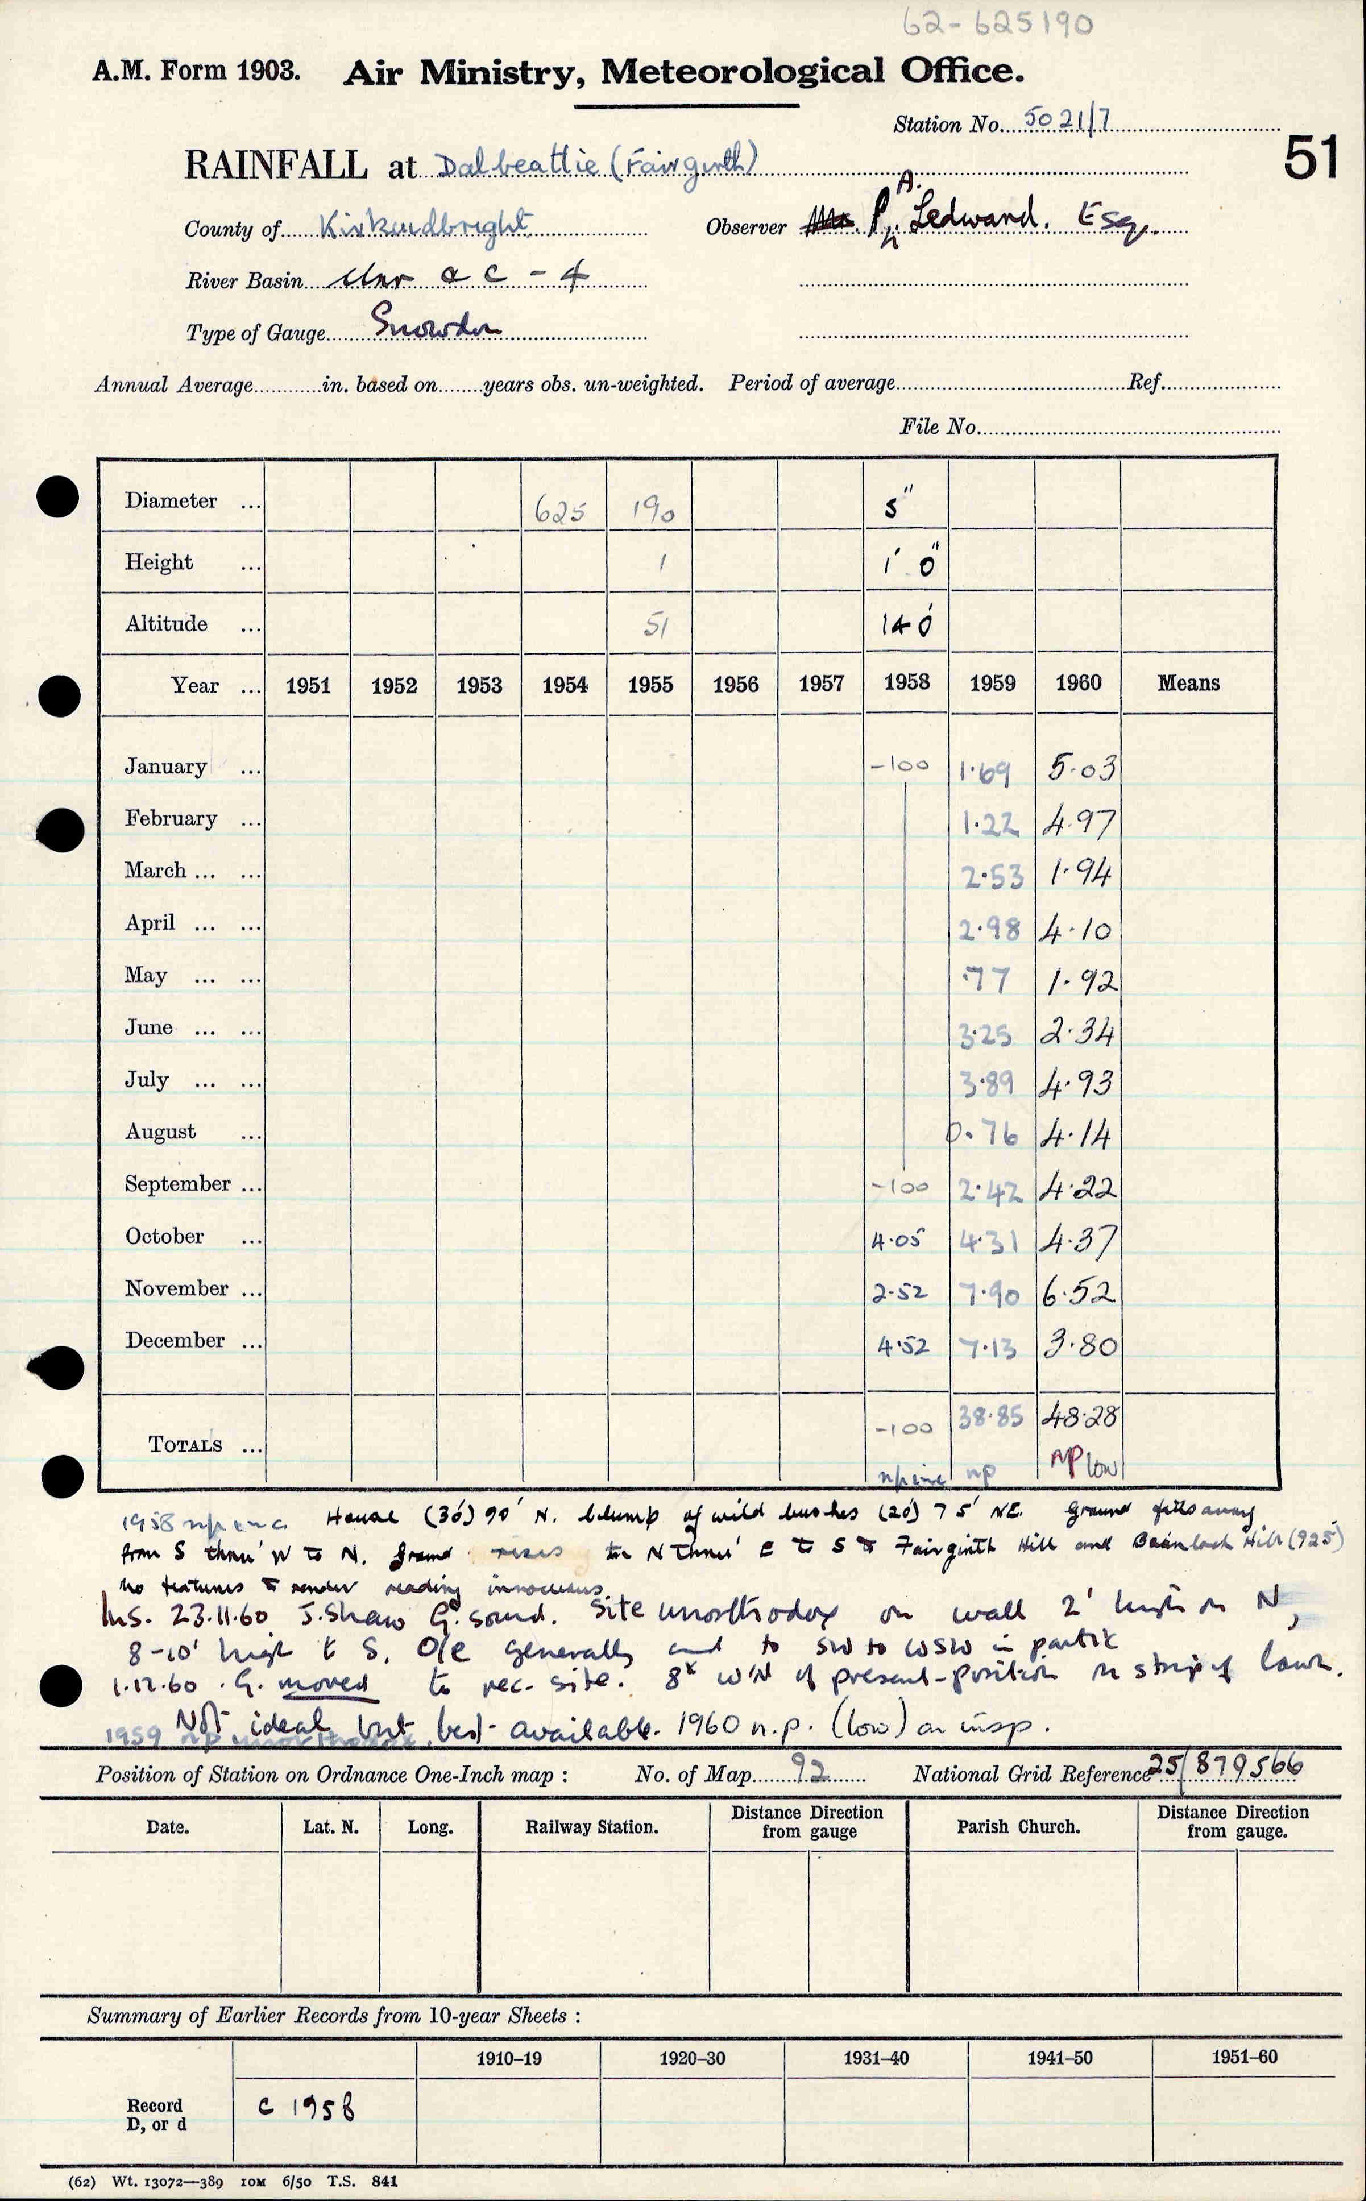 62-625190
A.M. Form 1903. Air Ministry, Meteorological Office.
Station No. 5021/7
51
RAINFALL at Dalbeattie (Fairgirth)
County of Kirkcudbright Observer P. A. Ledward. Esq.
River Basin a c - 4
Type of Gauge Snowdon
Annual Average in. based on years obs. un-weighted. Period of average Ref.
File No.
Diameter ... 625 190 5"
Height ... 1 1' 0"
Altitude ... 51 140'
Year ... 1951 1952 1953 1954 1955 1956 1957 1958 1959 1960 Means
January ... -100 1.69 5.03
February ... 1.22 4.97
March ... ... 2.53 1.94
April ... ... 2.98 4.10
May ... ... .77 1.92
June ... ... 3.25 2.34
July ... ... 3.89 4.93
August ... 0.76 4.14
September ... -100 2.42 4.22
October ... 4.05 4.31 4.37
November ... 2.52 7.90 6.52
December ... 4.52 7.13 3.80
TOTALS ... -100 38.85 48.28
np inc np NP low
1958 np inc House (30') 90' N. Clump of wild bushes (20') 75' NE. Ground falls away
from S thro' W to N. Ground rises to N thro' E to S to Fairgirth Hill and Hill (925')
No features to render reading innocuous
Ins. 23.11.60 J. Shaw G. sound. Site unorthodox on wall 2' high on N,
8-10' high to S. O/e generally and to SW to WSW in partic
1.12.60 G. moved to rec. site. 8x W'N of present position on strip of lawn.
Not ideal but best available. 1960 n.p. (low) on insp.
1959 np unorthodox
Position of Station on Ordnance One-Inch map : No. of Map 92 National Grid Reference 25/879566
Date. Lat. N. Long. Railway Station. Distance Direction from gauge Parish Church. Distance Direction from gauge.
Summary of Earlier Records from 10-year Sheets :
1910–19 1920–30 1931–40 1941–50 1951–60
Record D, or d C 1958
(62) Wt. 13072—389 10M 6/50 T.S. 841